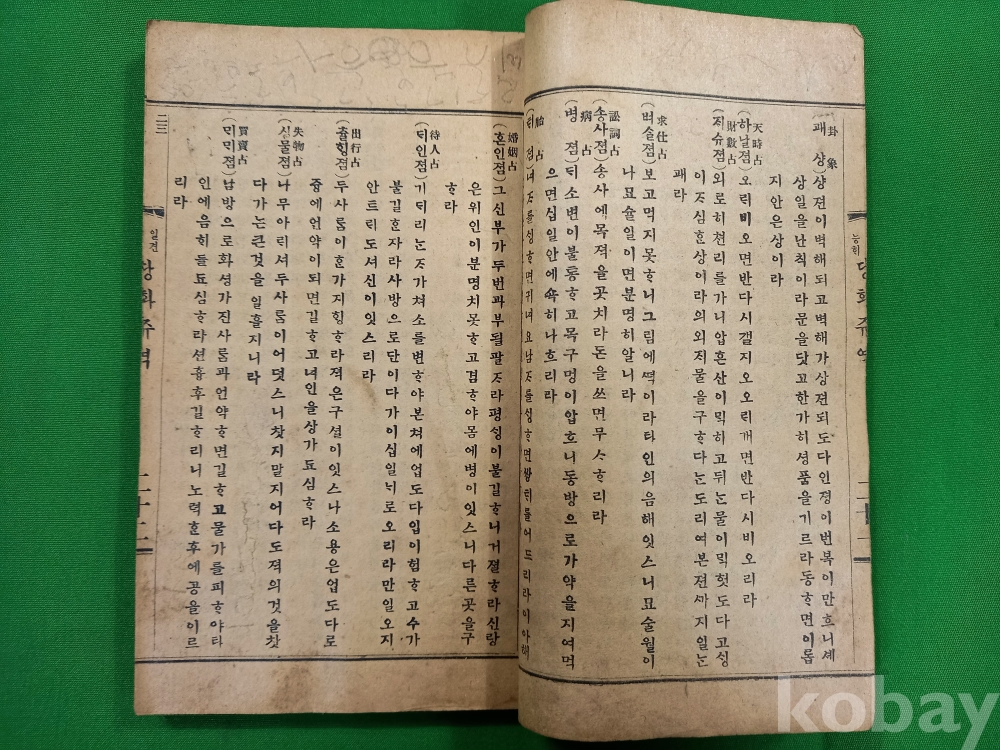 卦象
괘 상)상젼이벽해되고벽해가상젼되도다인졍이번복이만흐니셰
상일을난칙이라문을닷고한가히셩품을기르라동ᄒᆞ면이롭
지안은상이라
天時占
(하날졈)오ᄅᆡ비오면반다시갤지오오ᄅᆡ개면반다시비오리라
財數占
(ᄌᆡ슈졈)외로히쳔리를가니압흔산이막히고뒤눈물이막혓도다고셩
이ᄌᆞ심ᄒᆞᆫ상이라의외ᄌᆡ물을구ᄒᆞ다ᄂᆞᆫ도리여본젼ᄭᆞ지일ᄂᆞᆫ
괘라
求仕占
(벼슬졈)보고먹지못ᄒᆞ니그림에ᄯᅥᆨ이라타인의음해잇스니묘술월이
나묘슐일이면분명히알니라
訟詞占
(송사졈)송사에목져을곳치라돈을쓰면무ᄉᆞᄒᆞ리라
病占
(병 졈)ᄃᆡ소변이불통ᄒᆞ고목구멍이압흐니동방으로가약을지여먹
으면십일안에속히나흐리라
胎占
(ᄐᆡ 졈)녀ᄌᆞ를ᄉᆡᆼᄒᆞ면귀녀요남ᄌᆞ를ᄉᆡᆼᄒᆞ면쌍ᄐᆡ를어드리라
능히 당화쥬역
二十二
婚姻占
(혼인졈)그신부가두번과부될팔ᄌᆞ라평ᄉᆡᆼ이불길ᄒᆞ니거졀ᄒᆞ라신랑
은위인이분명치못ᄒᆞ고겸ᄒᆞ야몸에병이잇스니다른곳을구
ᄒᆞ라
待人占
(ᄃᆡ인졈)기ᄃᆡ리ᄂᆞᆫᄌᆞ가쳐소를변ᄒᆞ야본쳐에업도다입이험ᄒᆞ고수가
불길ᄒᆞᆫ자라사방으로단이다가이십일ᄂᆡ로오리라만일오지
안트ᄅᆡ도셔신이잇스리라
出行占
(츌ᄒᆡᆼ졈)두사ᄅᆞᆷ이ᄒᆞᆫ가지ᄒᆡᆼᄒᆞ라져은구셜이잇스나소용은업도다로
즁에언약이되면길ᄒᆞ고녀인을상가됴심ᄒᆞ라
失物占
(실물졈)나무아ᄅᆡ셔두사ᄅᆞᆷ이어덧스니찻지말지어다도져의것을찻
다가는큰것을일흘지니라
買賣占
(ᄆᆡᄆᆡ졈)남방으로화셩가진사ᄅᆞᆷ과언약ᄒᆞ면길ᄒᆞ고물가를피ᄒᆞ야타
인에음히들됴심ᄒᆞ라션흉후길ᄒᆞ리니노력ᄒᆞᆫ후에공을이르
리라
일견 당화쥬역
二十二
二三
kobay